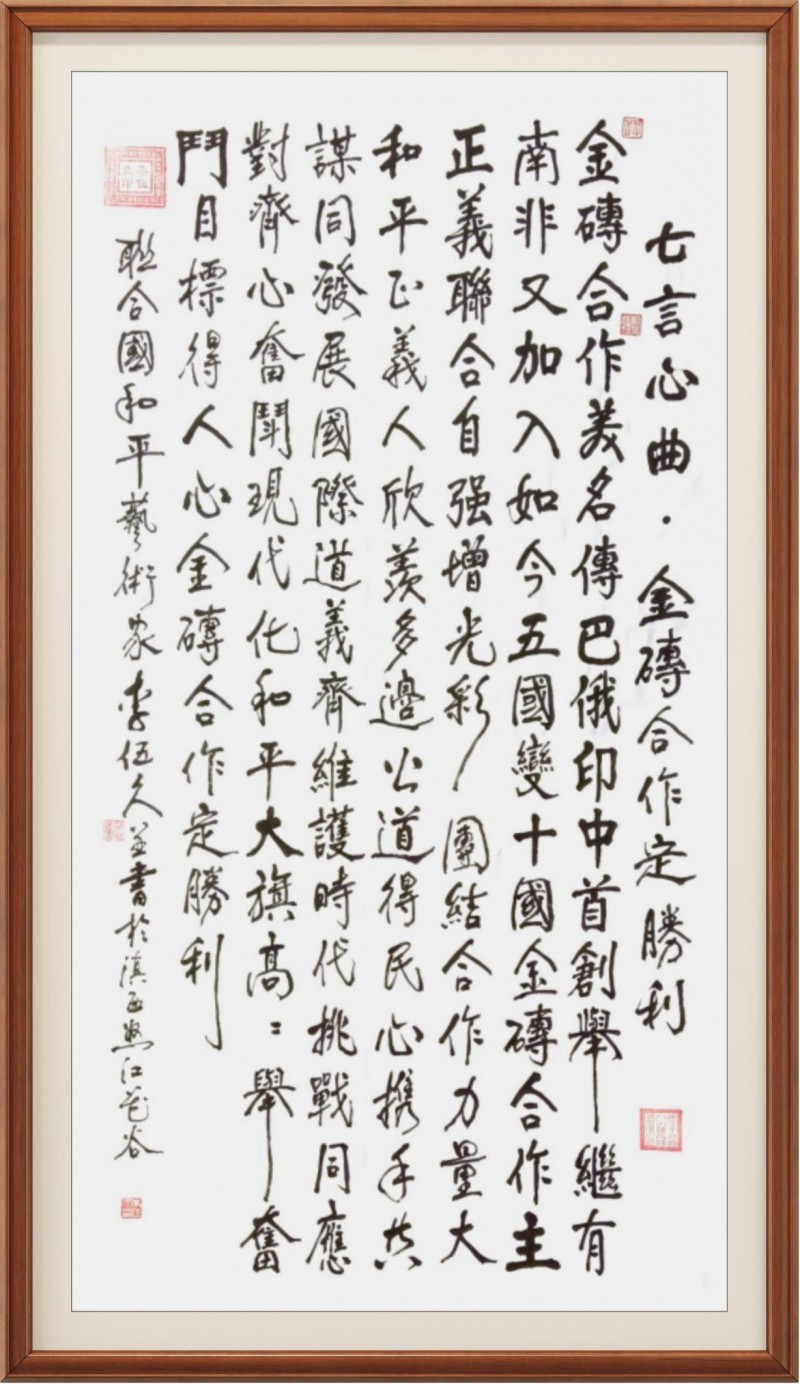 七言心曲·金磚合作定勝利
金磚合作美名傳巴俄印中首創舉繼有
南非又加入如今五國變十國金磚合作主
正義聯合自强增光彩團結合作力量大
和平正義人欣羡多邊公道得民心携手共
謀同發展國際道義齊維護時代挑戰同應
對齊心奮鬭現代化和平大旗高:舉奮
鬥目標得人心金磚合作定勝利
聯合國和平藝術家李伍久並書於滇西怒江花谷